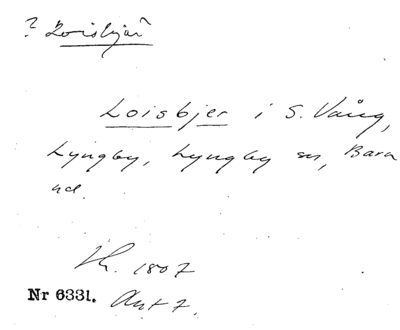 ? Loisbjär
Loisbjer i S. Vång,
Lyngby, Lyngby sn, Bara
hd.
1807
Nr 6331. Akt 7.